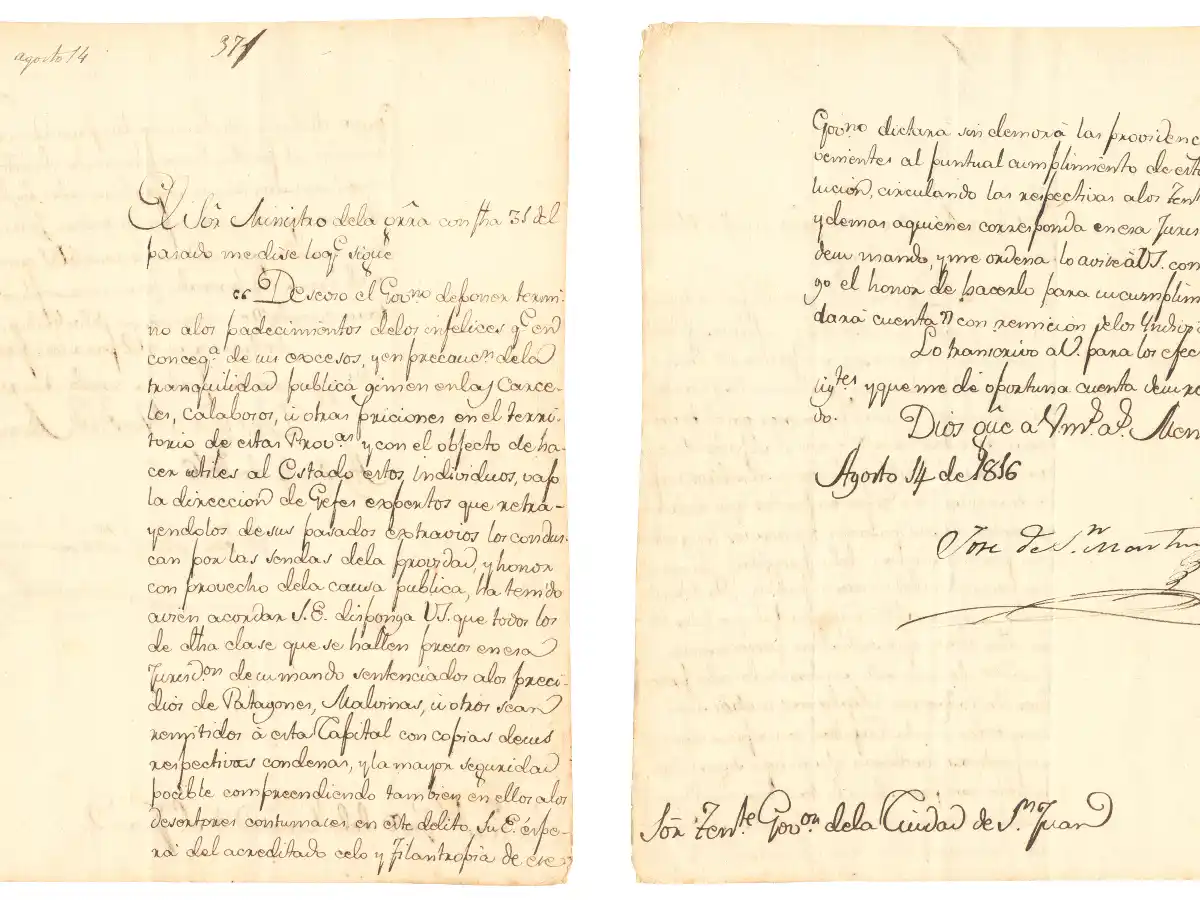 agosto 14
371
El Sör Ministro dela grrâ con fha 31 del
pasado me dise loq.e sigue
"Deseoso el Gov.no de poner termi-
no alos padecimientos delos infelices q.e en
conceq.a de sus excesos, y en precauc.n dela
tranquilidad publica gimen en las Carce-
les, calabosos, ú otras priciones en el terri-
torio de estas Prov.as y con el objecto de ha-
cer utiles al Estado estos individuos, vajo
la direccion de Gefes expertos que retra-
yendolos de sus pasados extravios los condus-
can por las sendas dela providad, y honor
con provecho dela causa publica, ha tenido
avien acordar S.E. disponga VS. que todos los
de dha clase que se hallen presos en esa
Jurisd.on de su mando sentenciados alos preci-
dios de Patagones, Malvinas, ú otros sean
remitidos à esta Capital con copias de sus
respectivas condenas, y la mayor seguridad
pocible compreendiendo tambien en ellos alos
desertores contumaces en este delito. Su E. espe-
ra del acreditado celo y filantropia de ese
Gov.no dictara sin demora las providenc
venientes al puntual cumplimiento de est
lucion, circulando las respectivas alos Ten
y demas aquienes corresponda en esa Juris
de su mando, y me ordena lo avise à VS. con
go el honor de hacerlo para su cumplim
dará cuenta con remicion de los Yndivi
Lo transcrivo a V. para los efec
sig.tes y que me dé oportuna cuenta de su re
do.
Dios gûe a Vm.d m.s a.s Men
Agosto 14 de 1816
Jose de S.n Martin
Sör Ten.te Gov.or dela Ciudad de S.n Juan